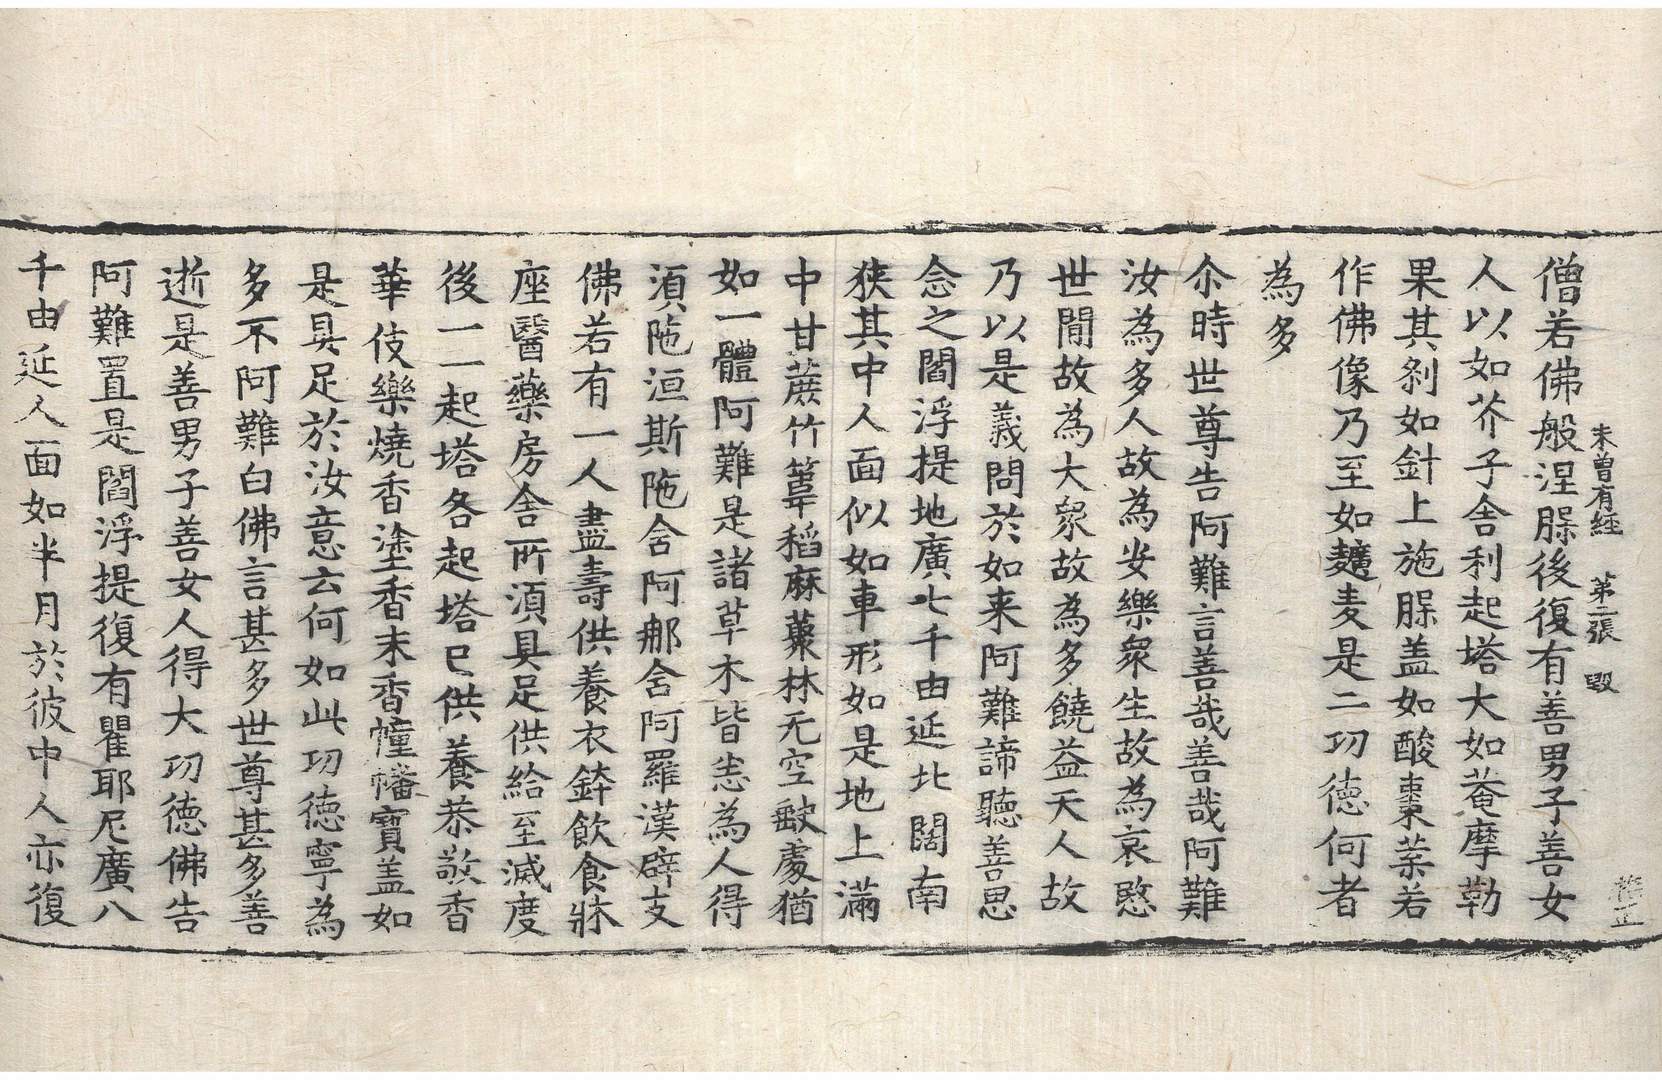 未曾有經 第二張 毀
僧若佛般涅腂後復有善男子善女
人以如芥子舍利起塔大如菴摩勒
果其刹如針上施腂盖如酸棗葉若
作佛像乃至如䵃麦是二功德何者
為多
尒時世尊告阿難言善哉善哉阿難
汝為多人故為安樂衆生故為哀愍
世間故為大衆故為多饒益天人故
乃以是義問於如来阿難諦聽善思
念之閻浮提地廣七千由延北闊南
狹其中人面似如車形如是地上滿
中甘蔗竹葦稻麻藂林无空缺處猶
如一體阿難是諸草木皆悉為人得
湏陁洹斯陁含阿那含阿羅漢辟支
佛若有一人盡壽供養衣鉢飲食牀
座醫藥房舍所湏具足供給至滅度
後一一起塔各起塔已供養恭敬香
華伎樂燒香塗香末香幢幡寶盖如
是具足於汝意云何如此功德寧為
多不阿難白佛言甚多世尊甚多善
逝是善男子善女人得大功德佛告
阿難置是閻浮提復有瞿耶尼廣八
千由延人面如半月於彼中人亦復